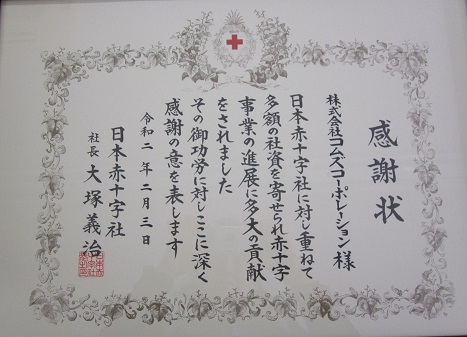 感謝状
株式会社コムズコーポレーション様
日本赤十字社に対し重ねて
多額の社資を寄せられ赤十字
事業の進展に多大の貢献
をされました
その御功労に対しここに深く
感謝の意を表します
令和二年二月三日
日本赤十字社
社長 大塚義治